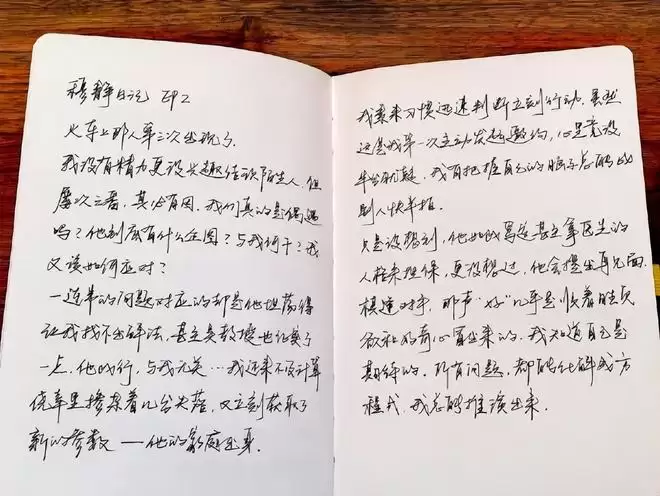 穆静日记 EP2
火车上那人第三次出现了.
我没有精力更没兴趣结识陌生人. 但
屡次三番, 其必有因. 我们真的是偶遇
吗? 他到底有什么企图? 与我何干? 我
又该如何应对?
一连串的问题对应的却是他坦荡得
让我找不出错法. 甚至莫教授也化繁了
一点, 他的行, 与我无关… 我还来不及计算
侥幸里掺杂着几分失落, 又立刻获取了
新的参数 —— 他的家庭出身.
我素来习惯迅速判断立刻行动. 虽然
这是我第一次主动发起邀约, 心里竟没
半分犹疑. 我有把握自己的脑子总能比
别人快半拍.
只是没想到, 他如此笃定甚至拿医生的
人格来担保, 更没想过, 他会提出再见面.
棋逢对手. 那声“好”几乎是顺着胜负
欲和好奇心冒出来的. 我知道自己是
期待的. 所有问题, 都能化解成方
程式, 我总能推演出来.